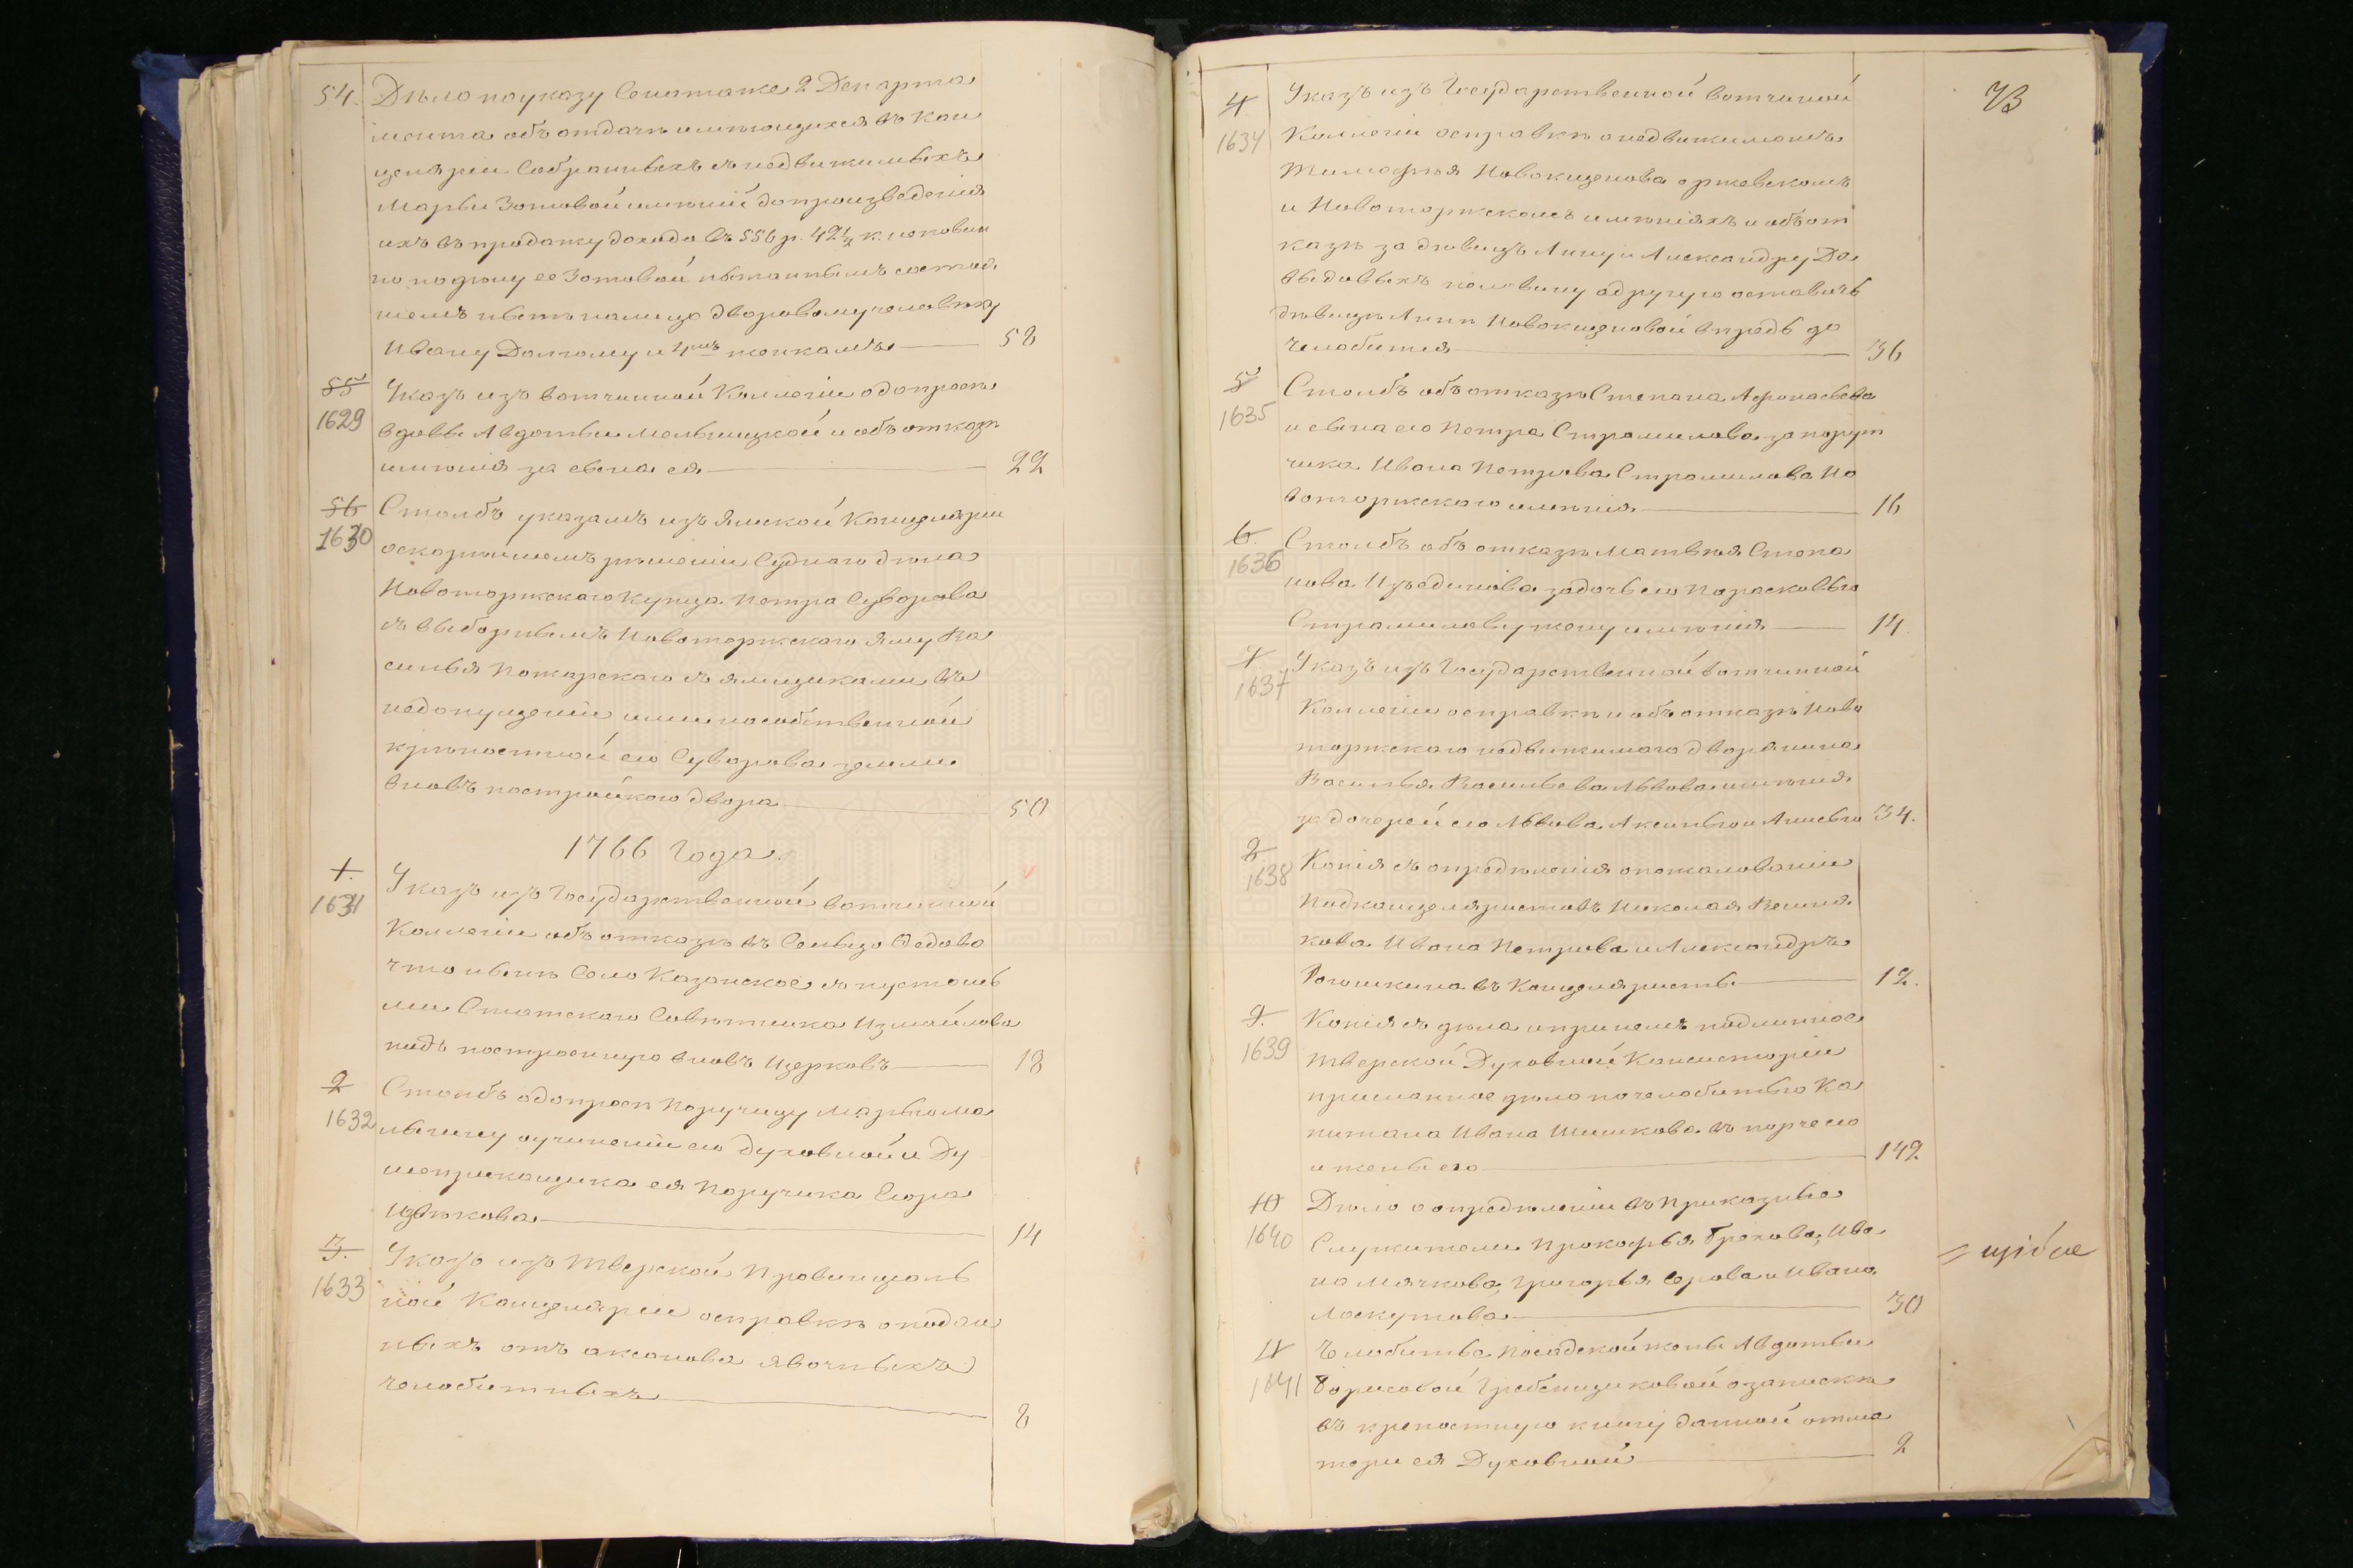 54. Дѣло по указу Сенатаже 2 Департа
мента объ отдачѣ имѣющихся въ Кан
целяріи Собранныхъ съ недвижимыхъ
Марьи Зотовой имѣній до произведенія
ихъ въ продажу дохода въ 556 р. 42½ к.
по по дѣлу ее Зотовой
нiемъ двуровому человѣку
Ивану Долгому и 4мъ женкамъ 58
55 Указъ изъ вотчинной Коллегіи о допросѣ
1629 вдовы Авдотьи Мельницкой и объ отказѣ
имѣнія за сына ея 22
56 Столбъ указамъ изъ Ямской Канцеляріи
1630 о скорѣйшемъ рѣшеніи Суднаго дѣла
Новоторжскаго Купца Петра Суворова
съ выборнымъ Новоторжскаго Яму Ва
силья Пожарскаго съ ямщиками въ
недопущеніи ими на собственной
крѣпостной его Суворова земли
вновь постройкою двора 50
1766 Года.
1. Указъ изъ Государственной вотчинной
1631 Коллегіи объ отказѣ въ Сельцо Федово
что нынѣ Село Казанское съ пустошь
ми Статскаго Совѣтника Измайлова
подъ построенную вновь Церковь 18
2 Столбъ о допросѣ Поручицу Марью Ма
1632 лыгину о учиненіи ею духовной и Ду
шеприкащика ея Поручика Егора
Цвѣткова 14
3. Указъ изъ Тверской Провинціаль
1633 ной Канцеляріи о справкѣ о подан
ныхъ отъ Аксакова явочныхъ
челобитныхъ 8
73
4 Указъ изъ Государственной вотчиной
1634 Коллегіи о справкѣ о недвижимомъ
Тимофѣя Новокщенова о ржевскомъ
и Новоторжскомъ имѣніяхъ и объ от
казѣ за дѣвицъ Анну и Александру Да
выдовыхъ половину а другую оставить
дѣвицѣ Аннѣ Новокщеновой впредь до
челобитья 36
5 Столбъ объ отказѣ Степана Афонасьева
1635 и сына его Петра Стромилова за порут
чика Ивана Петрова Стромилова Но
воторжскаго имѣнія 16
6. Столбъ объ отказѣ Матвѣя Степа
1636 нова Изъединова за дочь его Парасковью
Страмилову жену имѣнія 14.
7 Указъ изъ Государственной вотчинной
1637 Коллегіи о справкѣ и объ отказѣ Ново
торжскаго недвижимаго дворянина
Василья Васильева Львова имѣнія
за дочерей его Львова Аксинью и Анисью 34.
8 Копія съ опредѣленія о пожалованіи
1638 Подканцеляристовъ Николая Вешня
кова Ивана Петрова и Александръ
Рогошкина въ Канцеляристы 12.
9. Копія съ дѣла и при немъ подлинное
1639 Тверской Духовной Консисторіи
присланное дѣло по челобитью Ка
питана Ивана Шишкова въ порче его
и жены его 142
10 Дѣло о опредѣленіи въ Приказные
1640 Служители Прокофья Грехова, Ива
на Мячкова, Григорья Серова и Ивана
Лоскутова 30
11 Челобитье Посадской жены Авдотьи
1641 Борисовой Гребенщиковой о запискѣ
въ крепостную книгу данной отъ ма
тери ея Духовной 2